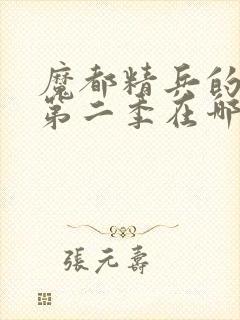 魔都精兵的
第二季在哪
張元壽